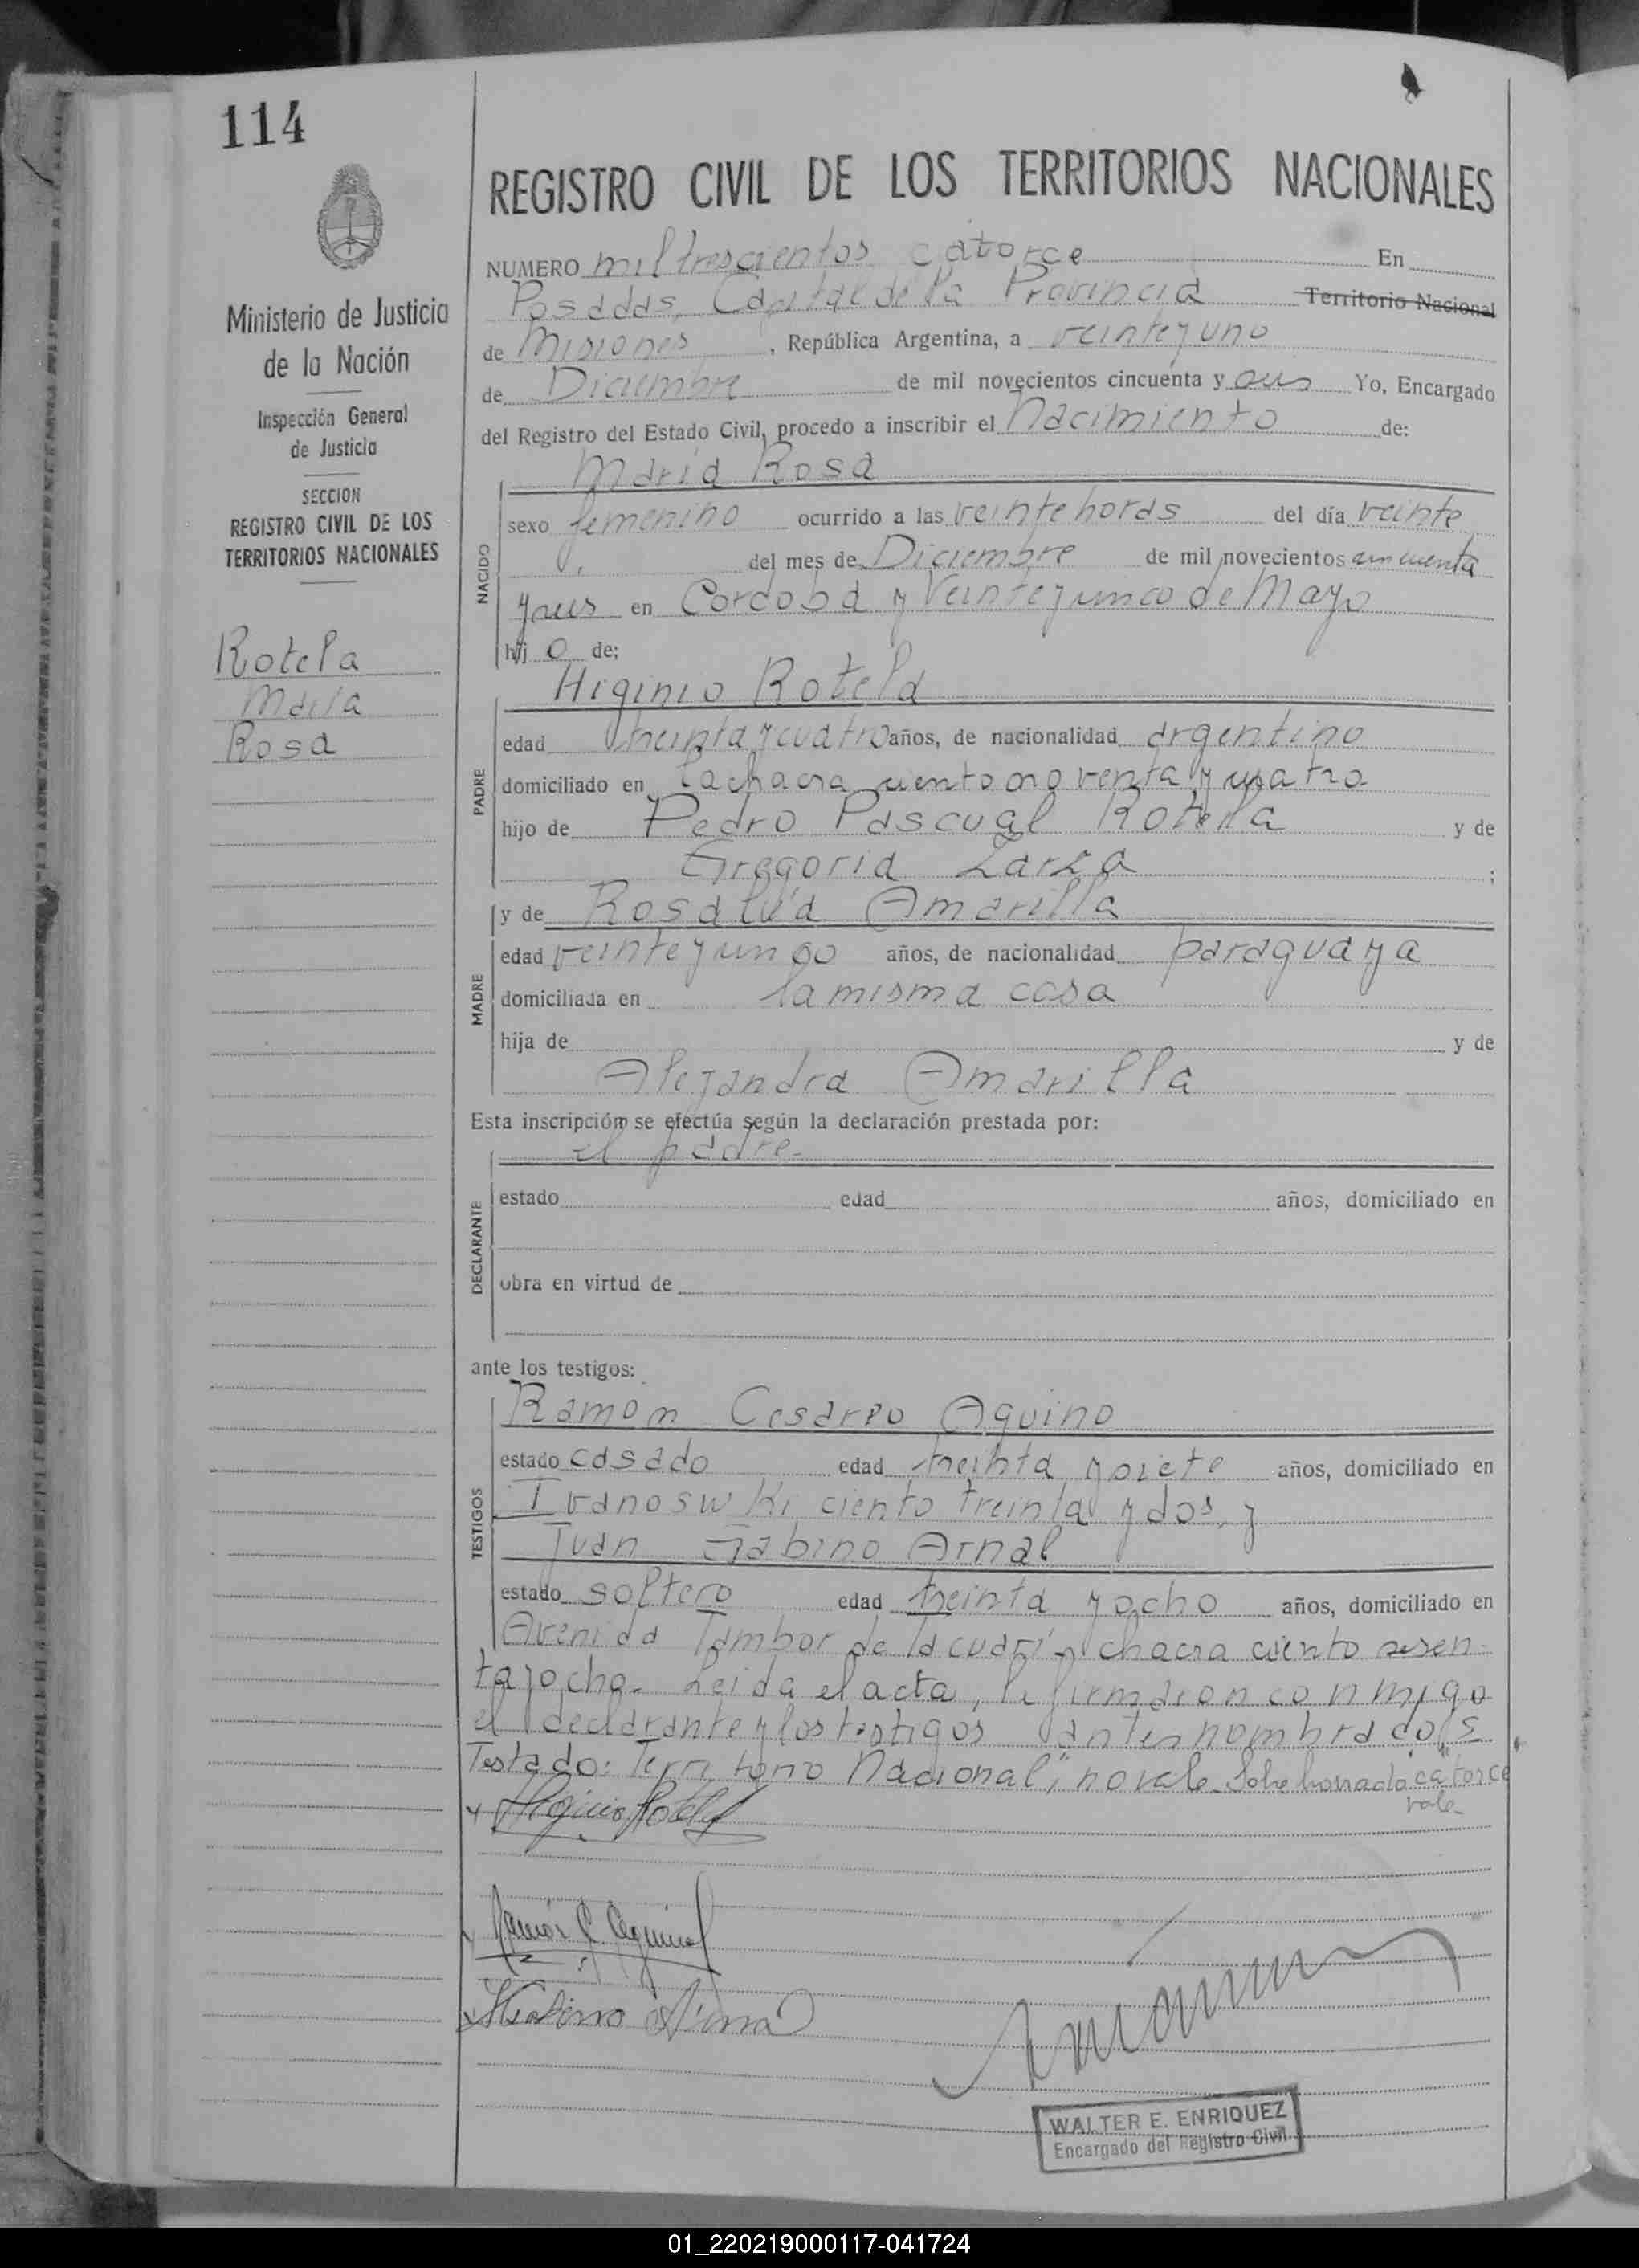 114
REGISTRO CIVIL DE LOS TERRITORIOS NACIONALES
NUMERO mil trescientos catorce En
Posadas, Capital de la Provincia Territorio Nacional
de Misiones, República Argentina, a veinte y uno
de Diciembre de mil novecientos cincuenta y seis Yo, Encargado
del Registro del Estado Civil, procedo a inscribir el Nacimiento de:
Maria Rosa
Ministerio de Justicia
de la Nación
Inspección General
de Justicia
SECCION
REGISTRO CIVIL DE LOS
TERRITORIOS NACIONALES
Rotela
Maria
Rosa
NACIDO
sexo femenino ocurrido a las veinte horas del día veinte
del mes de Diciembre de mil novecientos cincuenta
y seis en Cordoba y Veinte y cinco de Mayo
hij o de:
Higinio Rotela
PADRE
edad treinta y cuatro años, de nacionalidad argentino
domiciliado en la chacra ciento noventa y cuatro
hijo de Pedro Pascual Rotela y de
Gregoria Zarza ;
y de Rosalía Amarilla
MADRE
edad veinte y cinco años, de nacionalidad paraguaya
domiciliada en la misma casa
hija de y de
Alejandra Amarilla
Esta inscripción se efectúa según la declaración prestada por:
el padre.-
DECLARANTE
estado edad años, domiciliado en
obra en virtud de
ante los testigos:
Ramon Cesareo Aquino
TESTIGOS
estado casado edad treinta y siete años, domiciliado en
Ivanoswki ciento treinta y dos, y
Juan Gabino Arnal
estado soltero edad treinta y ocho años, domiciliado en
Avenida Tambor de Tacuarí - chacra ciento sesen-
ta y ocho.- Leida el acta, la firmaron conmigo
el declarante y los testigos antes nombrados
Testado: "Territorio Nacional", no vale. Sobre borrado: "catorce"
vale-
Higinio Rotela
Ramón C. Aquino
WALTER E. ENRIQUEZ
Encargado del Registro Civil
01_220219000117-041724